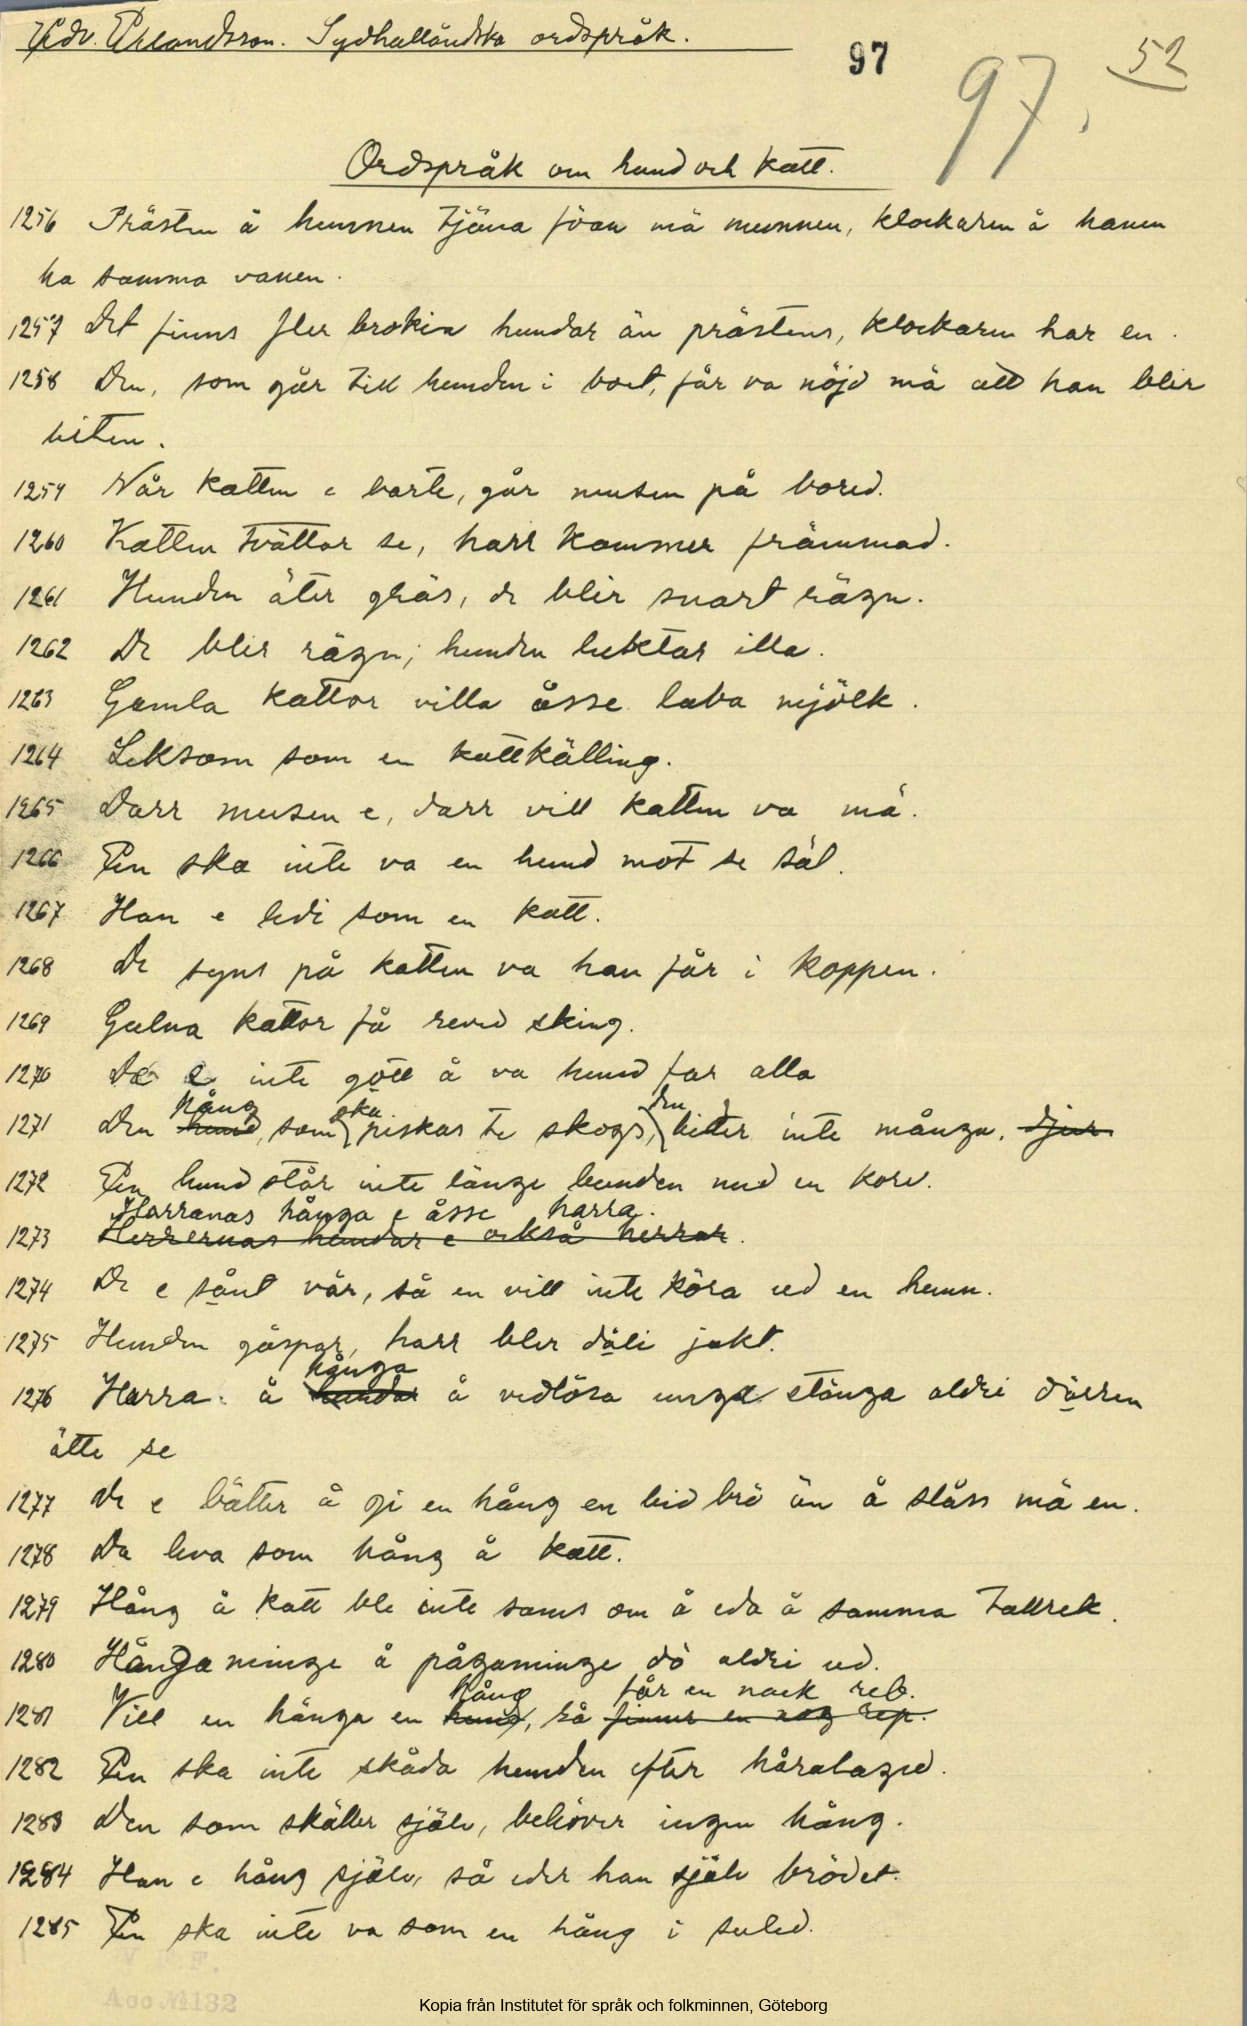 Edv. Erlandsson. Sydhalländska ordspråk.
97 97. 52
Ordspråk om hund och katt.
1256 Prästen å hunnen tjäna föan mä munnen, klockaren å hanen
ha samma vanen.
1257 Det finns fler brokia hundar än prästens, klockaren har en.
1258 Den, som går till hunden i bort, får va nöjd mä att han blir
biten.
1259 Når katten e borte, går musen på bored.
1260 Katten tvättar se, harr kommer främmad.
1261 Hunden äter gräs, de blir snart rägn.
1262 De blir rägn; hunden luktar illa.
1263 Gamla kattor villa åsse laba mjölk.
1264 Leksam som en kattkälling.
1265 Darr musen e, darr vill katten va mä.
1266 En ska inte va en hund mot se säl.
1267 Han e ledi som en katt.
1268 De syns på katten va han får i koppen.
1269 Galna kattor få reved sking.
1270 De e inte gott å va hund far alla
1271 Den hund hång, som ska piskas te skogs, den bider inte många. djur
1272 En hund står inte länge bunden med en korv.
Harranas hånga e åsse harra.
1273 Herrernas hundar e också herrar.
1274 De e sånt vär, så en vill inte köra ud en hunn.
1275 Hunden gäspar, harr blir dåli jakt.
1276 Harra å hundar hånga å vedlösa unga stänga aldri dörren
ätte se
1277 De e bätter å gi en hång en bid brö än å slåss mä en.
1278 Da leva som hång å katt.
1279 Hång å katt ble inte sams om å eda å samma tallrek.
1280 Hångaminge å pågaminge dö aldri ud.
1281 Vill en hänga en hund hång, så finns en nog rep. får en nack reb.
1282 En ska inte skåda hunden efter håralaged.
1283 Den som skäller själv, behöver ingen hång.
1284 Han e hång själv, så eder han själv brödet.
1285 En ska inte va som en hång i suled.
Acc. № 132
Kopia från Institutet för språk och folkminnen, Göteborg